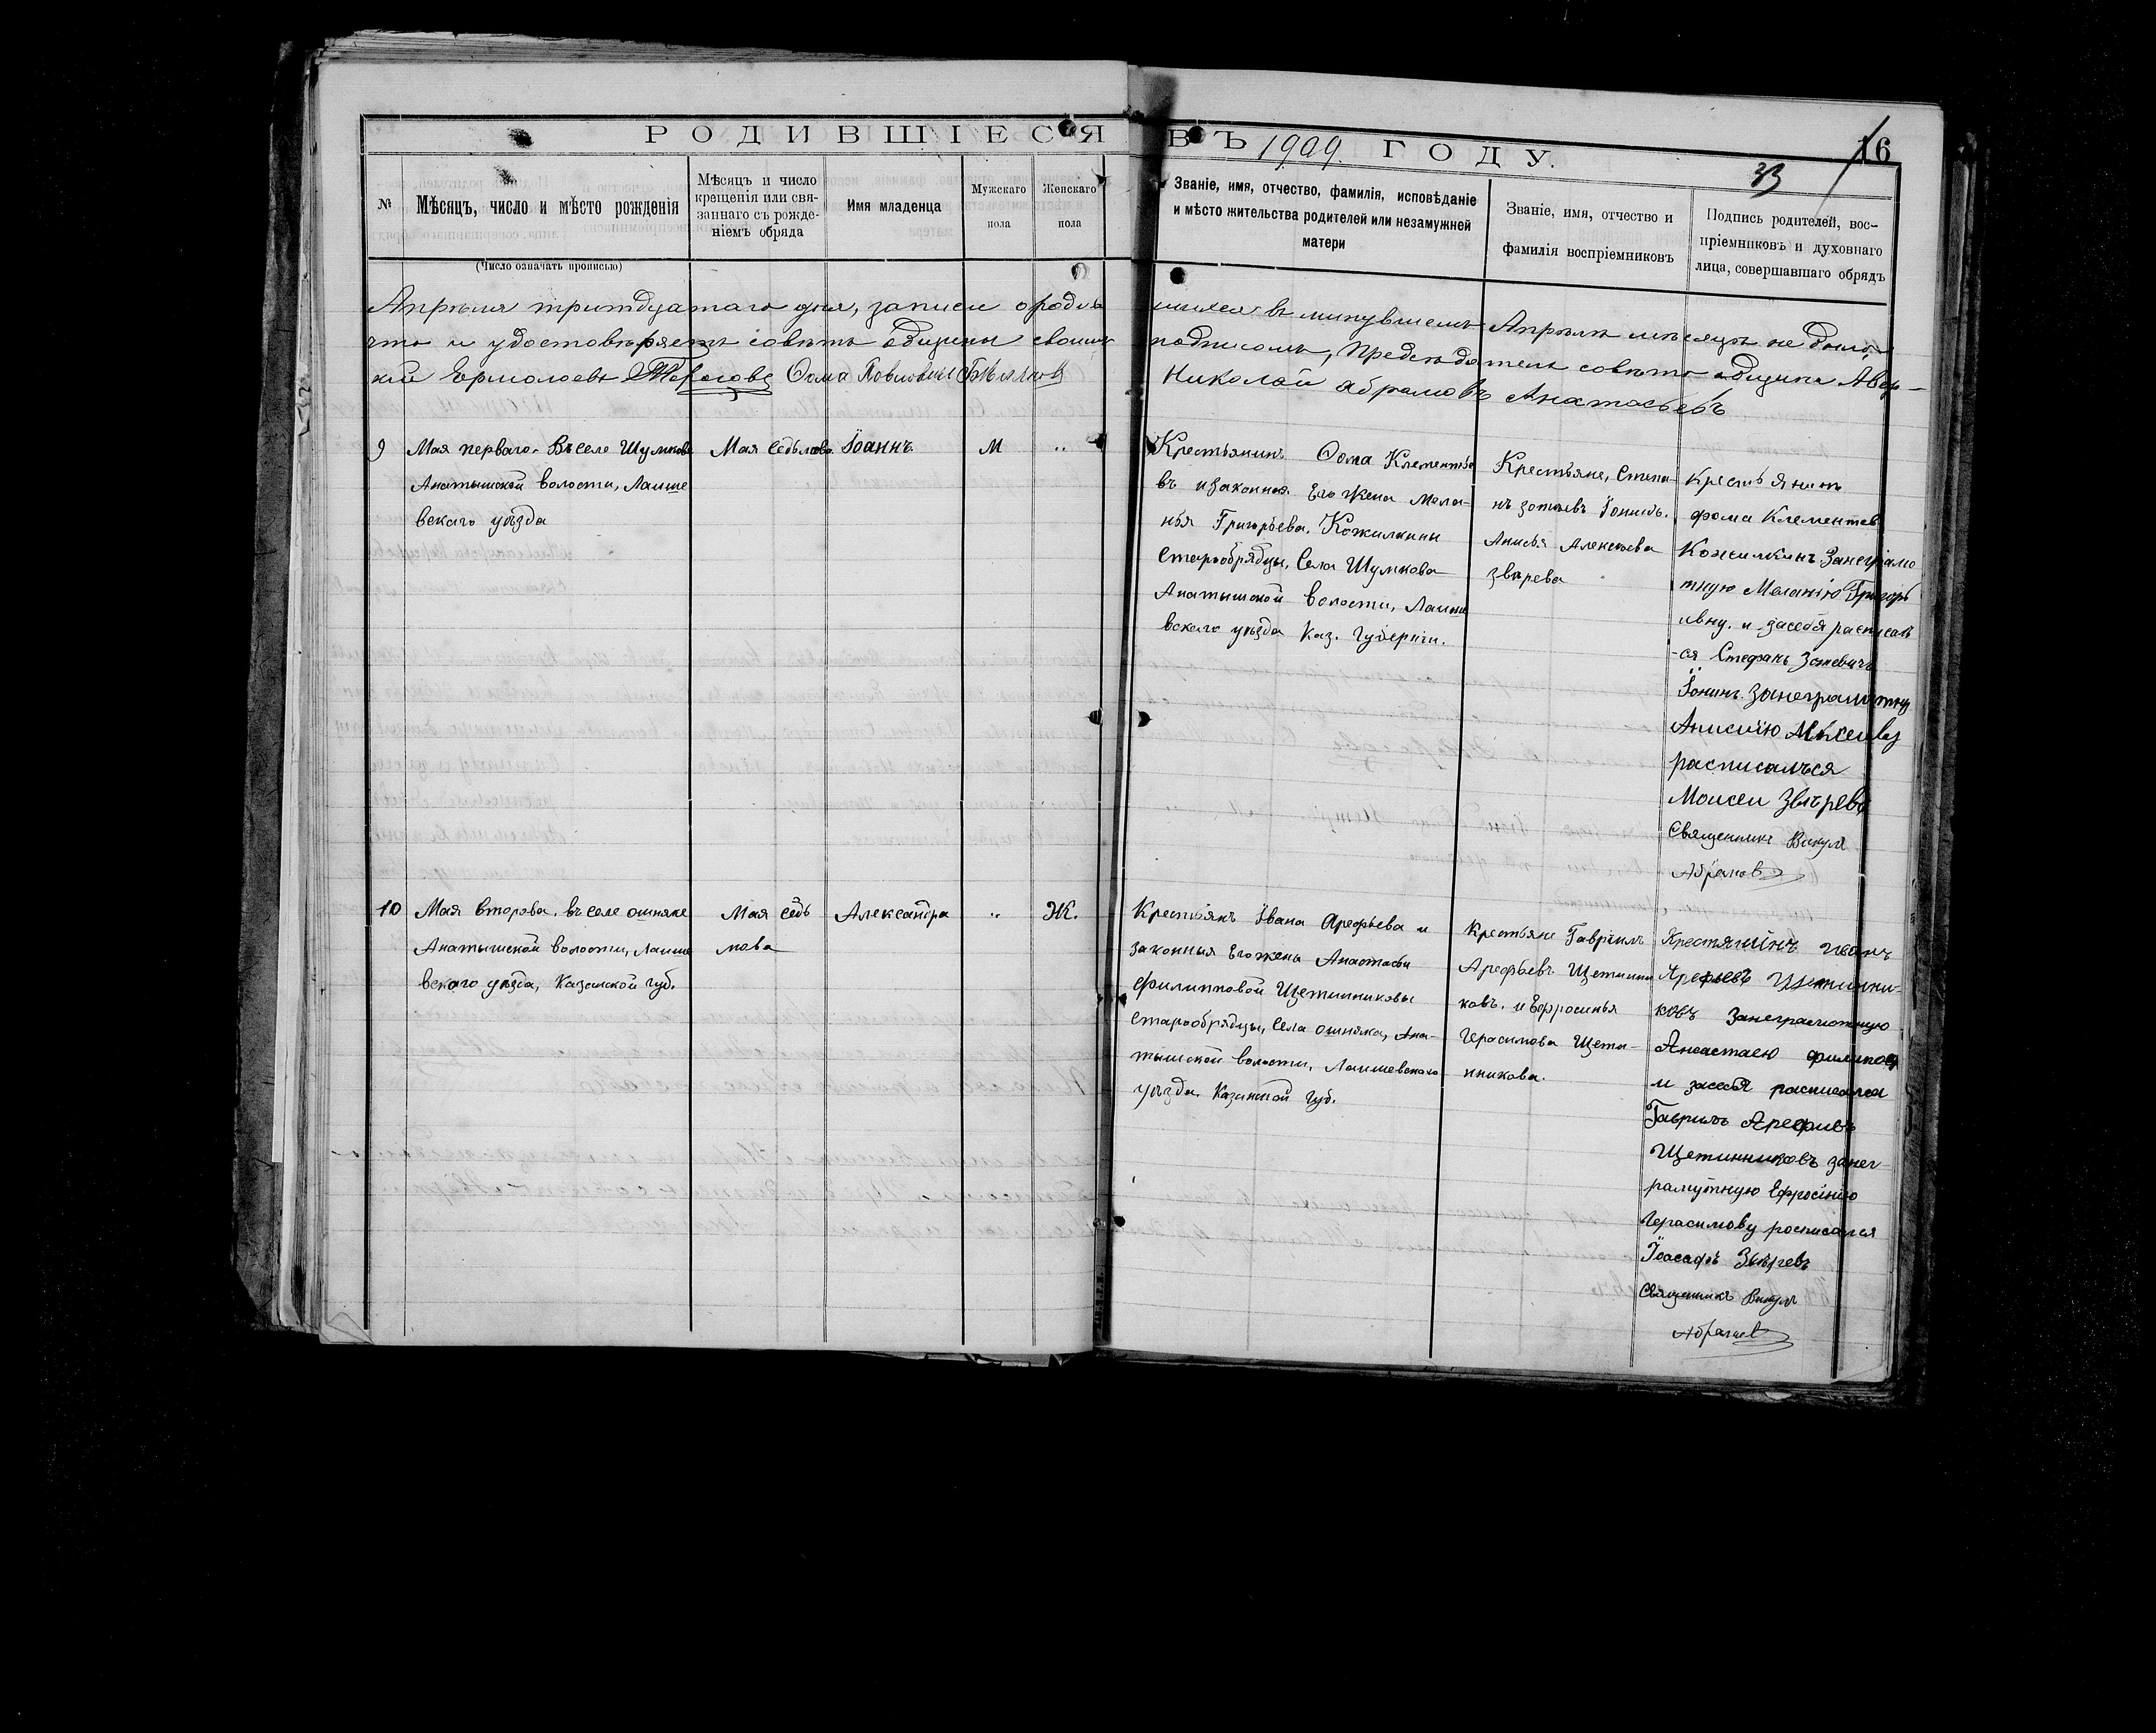 РОДИВШІЕСЯ ВЪ 1909. ГОДУ.
16
33
№
Мѣсяцъ, число и мѣсто рожденія
Мѣсяцъ и число
крещенія или свя-
заннаго съ рожде-
ніемъ обряда
Имя младенца
Мужскаго
пола
Женскаго
пола
Званіе, имя, отчество, фамилія, исповѣданіе
и мѣсто жительства родителей или незамужней
матери
Званіе, имя, отчество и
фамилія воспріемниковъ
Подпись родителей, вос-
пріемниковъ и духовнаго
лица, совершавшаго обрядъ
(Число означать прописью)
Апрѣля тритдцатаго дня, записи о родив
шихся въ минувшемъ Апрѣлѣ мѣсяцѣ не было,
что и удостовѣряетъ совѣтъ общины своимъ
подписомъ, Председатель совѣта общины Авер-
кій Ермолоевъ Ѳома Павловичъ
Николай абрамовъ Анатасьевъ
9
Мая перваго. Въ селе Шумкове
Анатышской волости, Лаише
вскаго уѣзда
Мая Седьмова
Іоаннъ
М
"
Крестьянинъ Ѳома Клементье
въ изаконная его жена Мела-
нья Григорьева, Кожилкины
Старообрядцы, Села Шумкова
Анатышской волости, Лаише
вскаго уѣзда Каз. Губерніи.
Крестьяне, Степа-
нъ зотѣевъ Іонинъ.
Анисья Алексѣева
звѣрева
Крестьянинъ
фома Клементев
Кожилкинъ Занеграмо
тную Меланію Григорь
ивну. и засебя расписал
-ся Стефанъ Зотевичъ
Іонинъ. занеграмотну
Анисию
расписалъся
Моисеи Звѣревъ
Священникъ Викулъ
Абрамов
10
Мая второва. въ селе ошняке
Анатышской волости, Лаише
вскаго уѣзда, Казанской губ.
Мая седь
мова
Александра
"
Ж.
Крестьянъ Ивана Арефьева и
законныя Его жены Анастасьи
филипповой Щетинниковы
Старообрядцы, Села ошняка, Ана-
тышской волости, Лаишевскаго
уѣзда. Казанской Губ.
Крестьяне Гаврiилъ
Арефьевъ Щетинни
ковъ. и Ефросинья
Герасимова Щети-
нникова.
Крестянинъ иванъ
Арефьевъ Щетинни-
ковъ Занеграмотную
Анастасею филипов
и засебя расписался
Гаврилъ Арефивъ
Щетинниковъ занег-
рамутную Ефросінію
Герасимову росписался
Іоасафъ Звѣревъ
Священникъ Викулъ
Абрамов